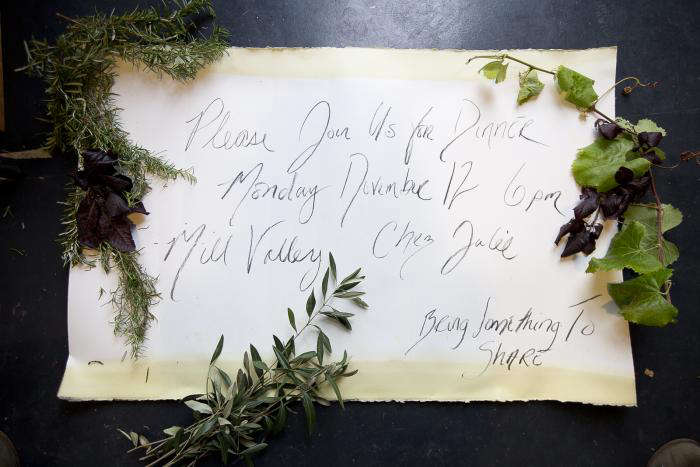 Please Join Us for Dinner
Monday November 12 6pm
Mill Valley Chez Julie
Bring Something To
SHARE